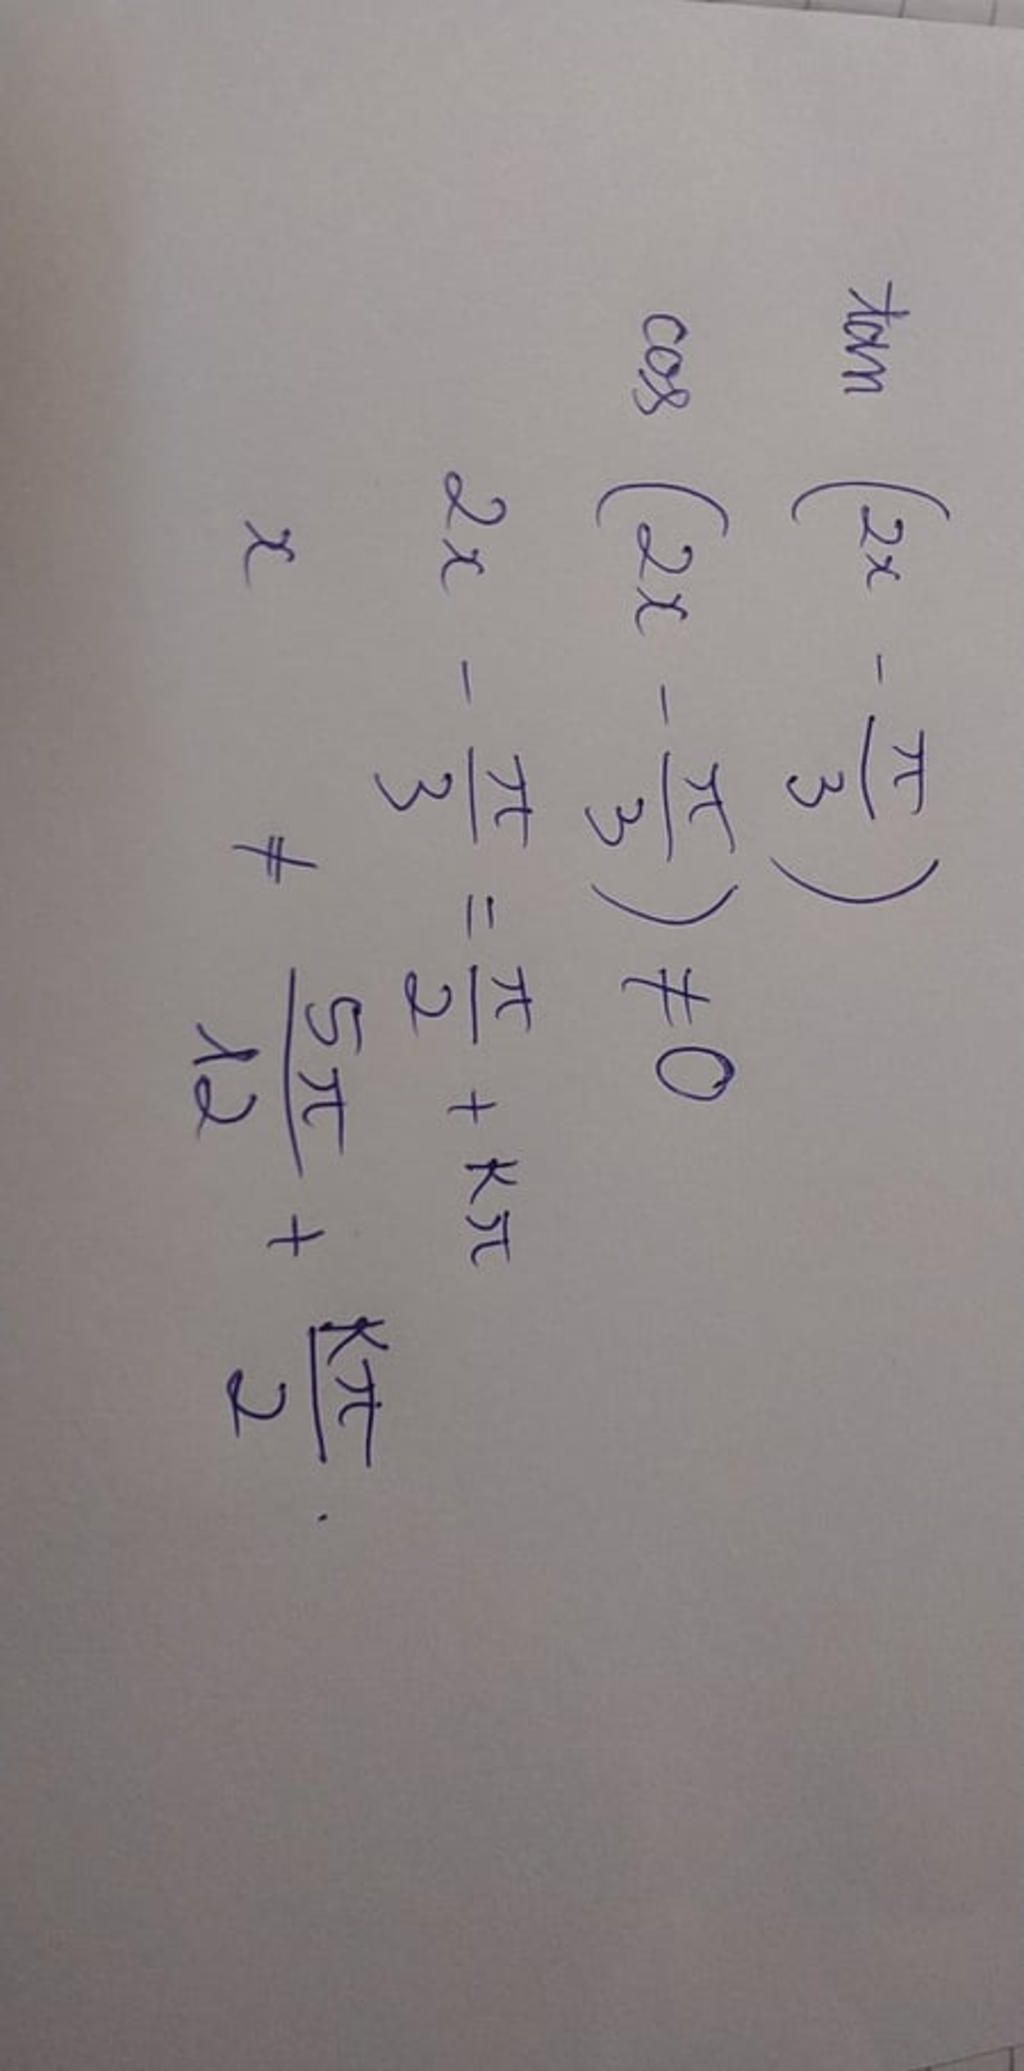 tan (2x - π/3)
cos (2x - π/3) ≠ 0
2x - π/3 = π/2 + kπ
x ≠ 5π/12 + kπ/2 .